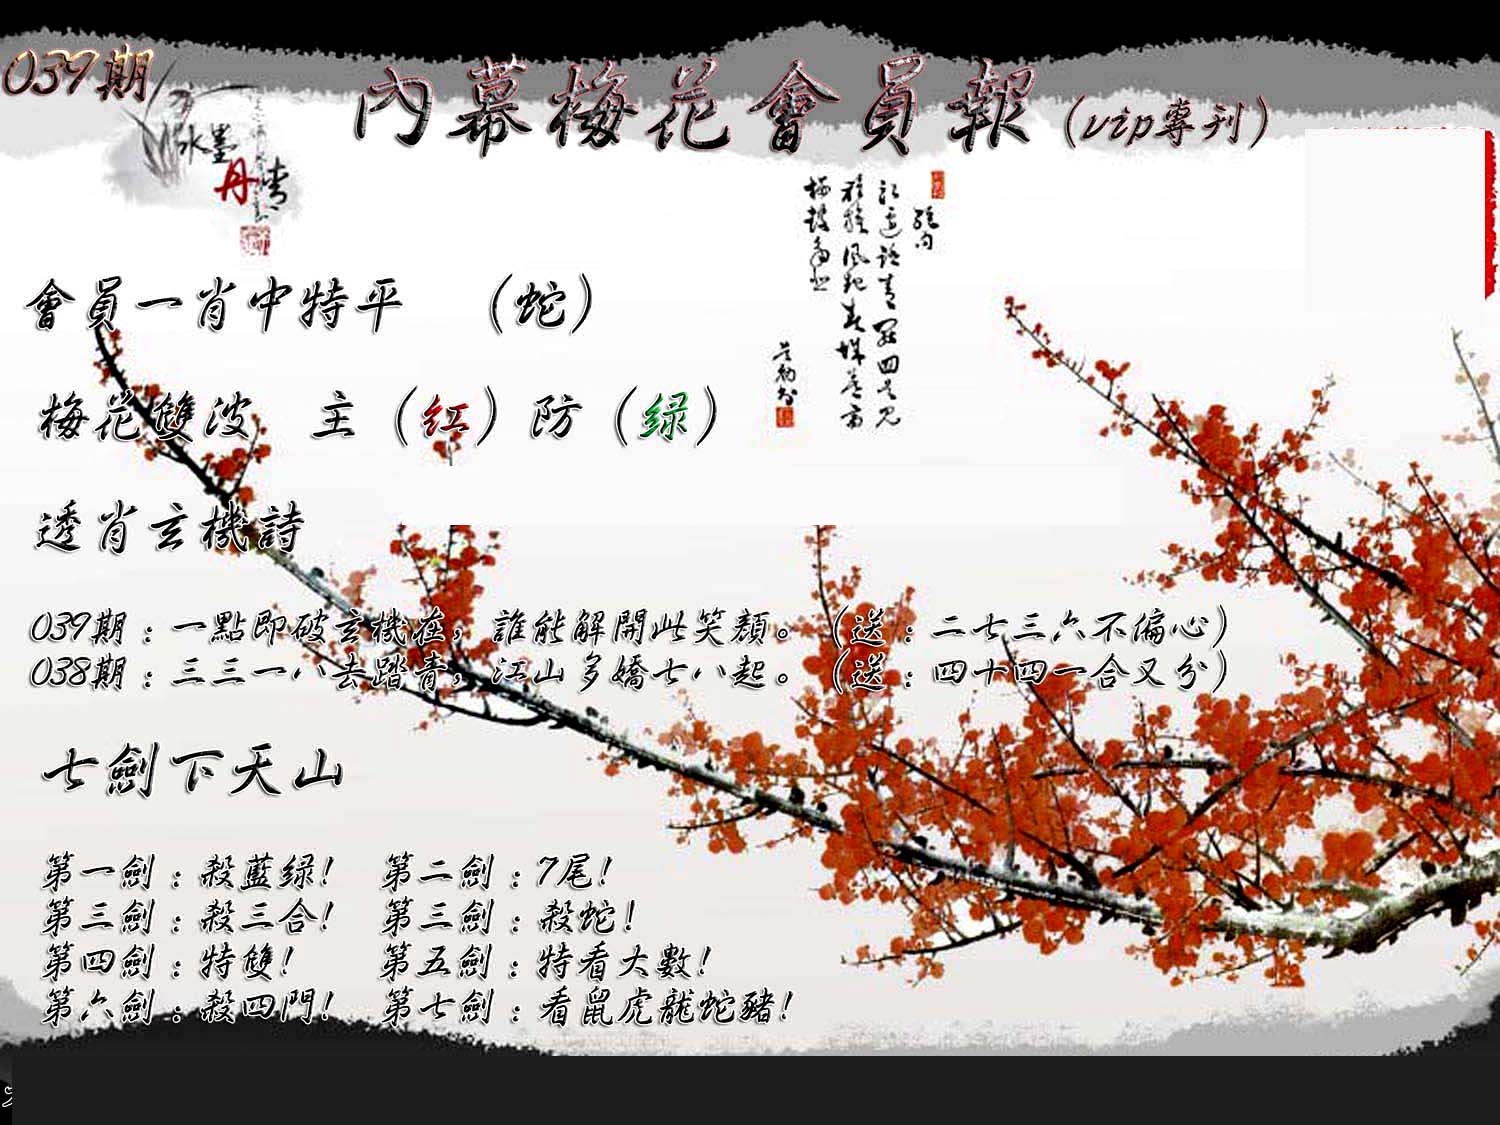 039期
內幕梅花會員報(vip專刊)
水墨
丹青
絕句
會員一肖中特平 （蛇）
梅花雙波 主（红）防（绿）
透肖玄機詩
039期：一點即破玄機在，誰能解開此笑顏。（送：二七三六不偏心）
038期：三三一八去踏青，江山多嬌七八起。（送：四十四一合又分）
七劍下天山
第一劍：殺藍绿！ 第二劍：7尾！
第三劍：殺三合！ 第三劍：殺蛇！
第四劍：特雙！ 第五劍：特看大數！
第六劍：殺四門！ 第七劍：看鼠虎龍蛇豬！